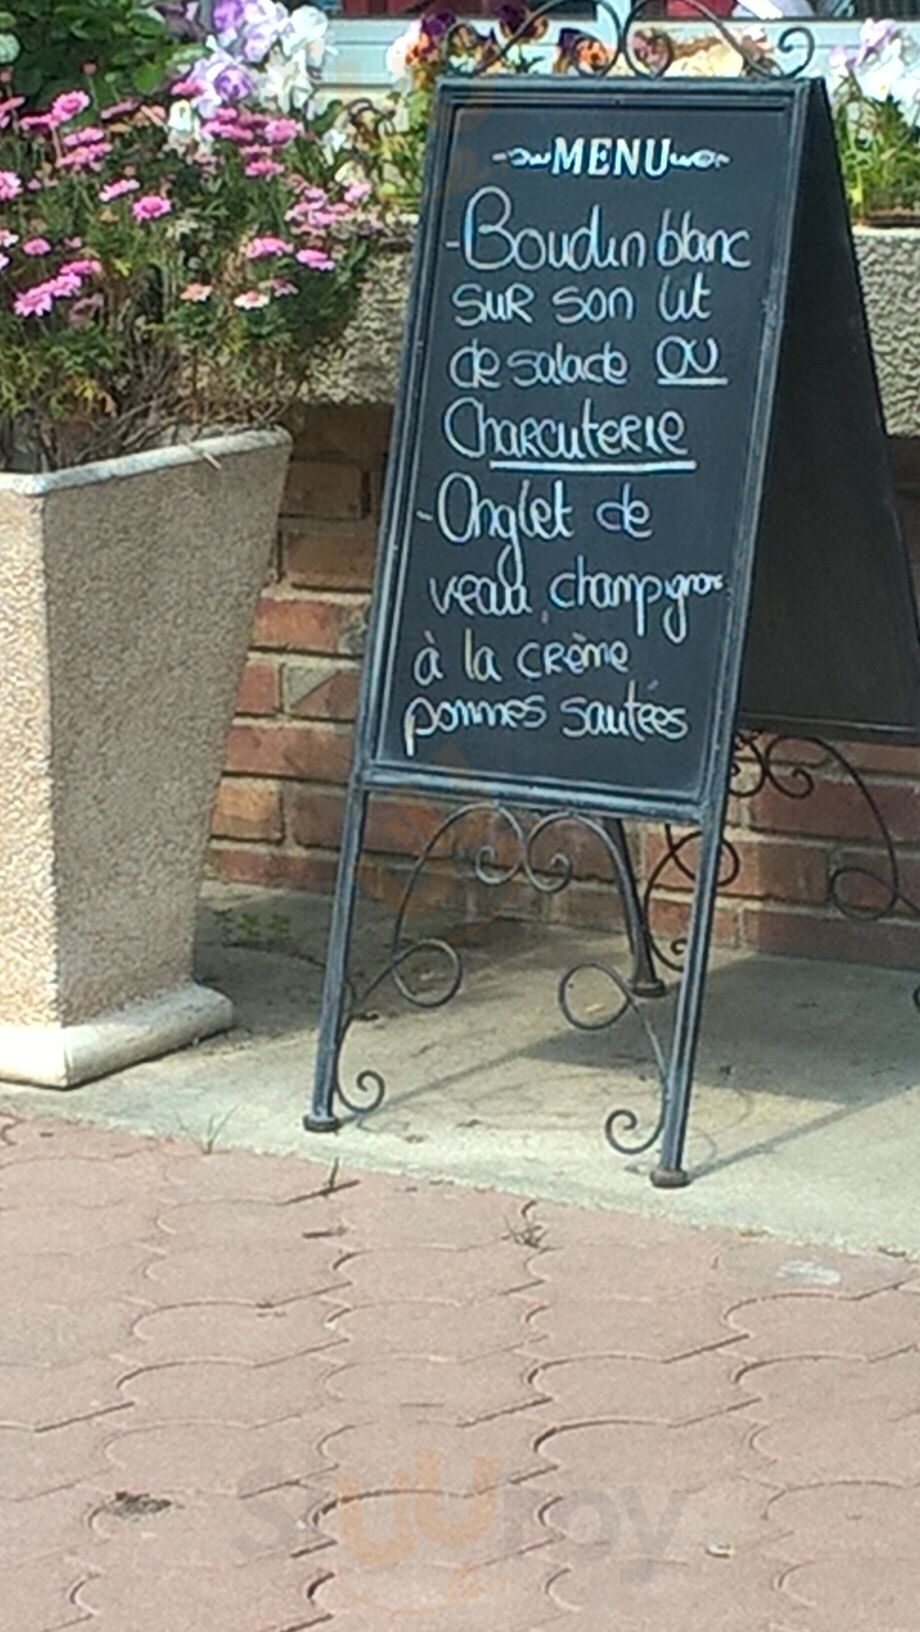 MENU
- Boudin blanc
sur son lit
de salade ou
Charcuterie
- Onglet de
veau, champignon
à la crème
pommes sautées